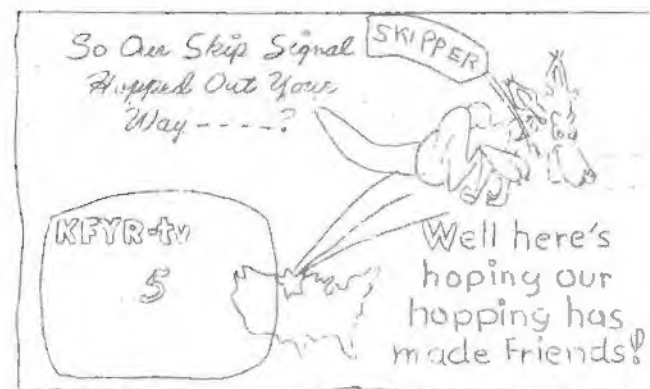 So Our Skip Signal
Hopped Out Your
Way - - - - - ?
SKIPPER
KFYR-tv
5
Well here's
hoping our
hopping has
made Friends!